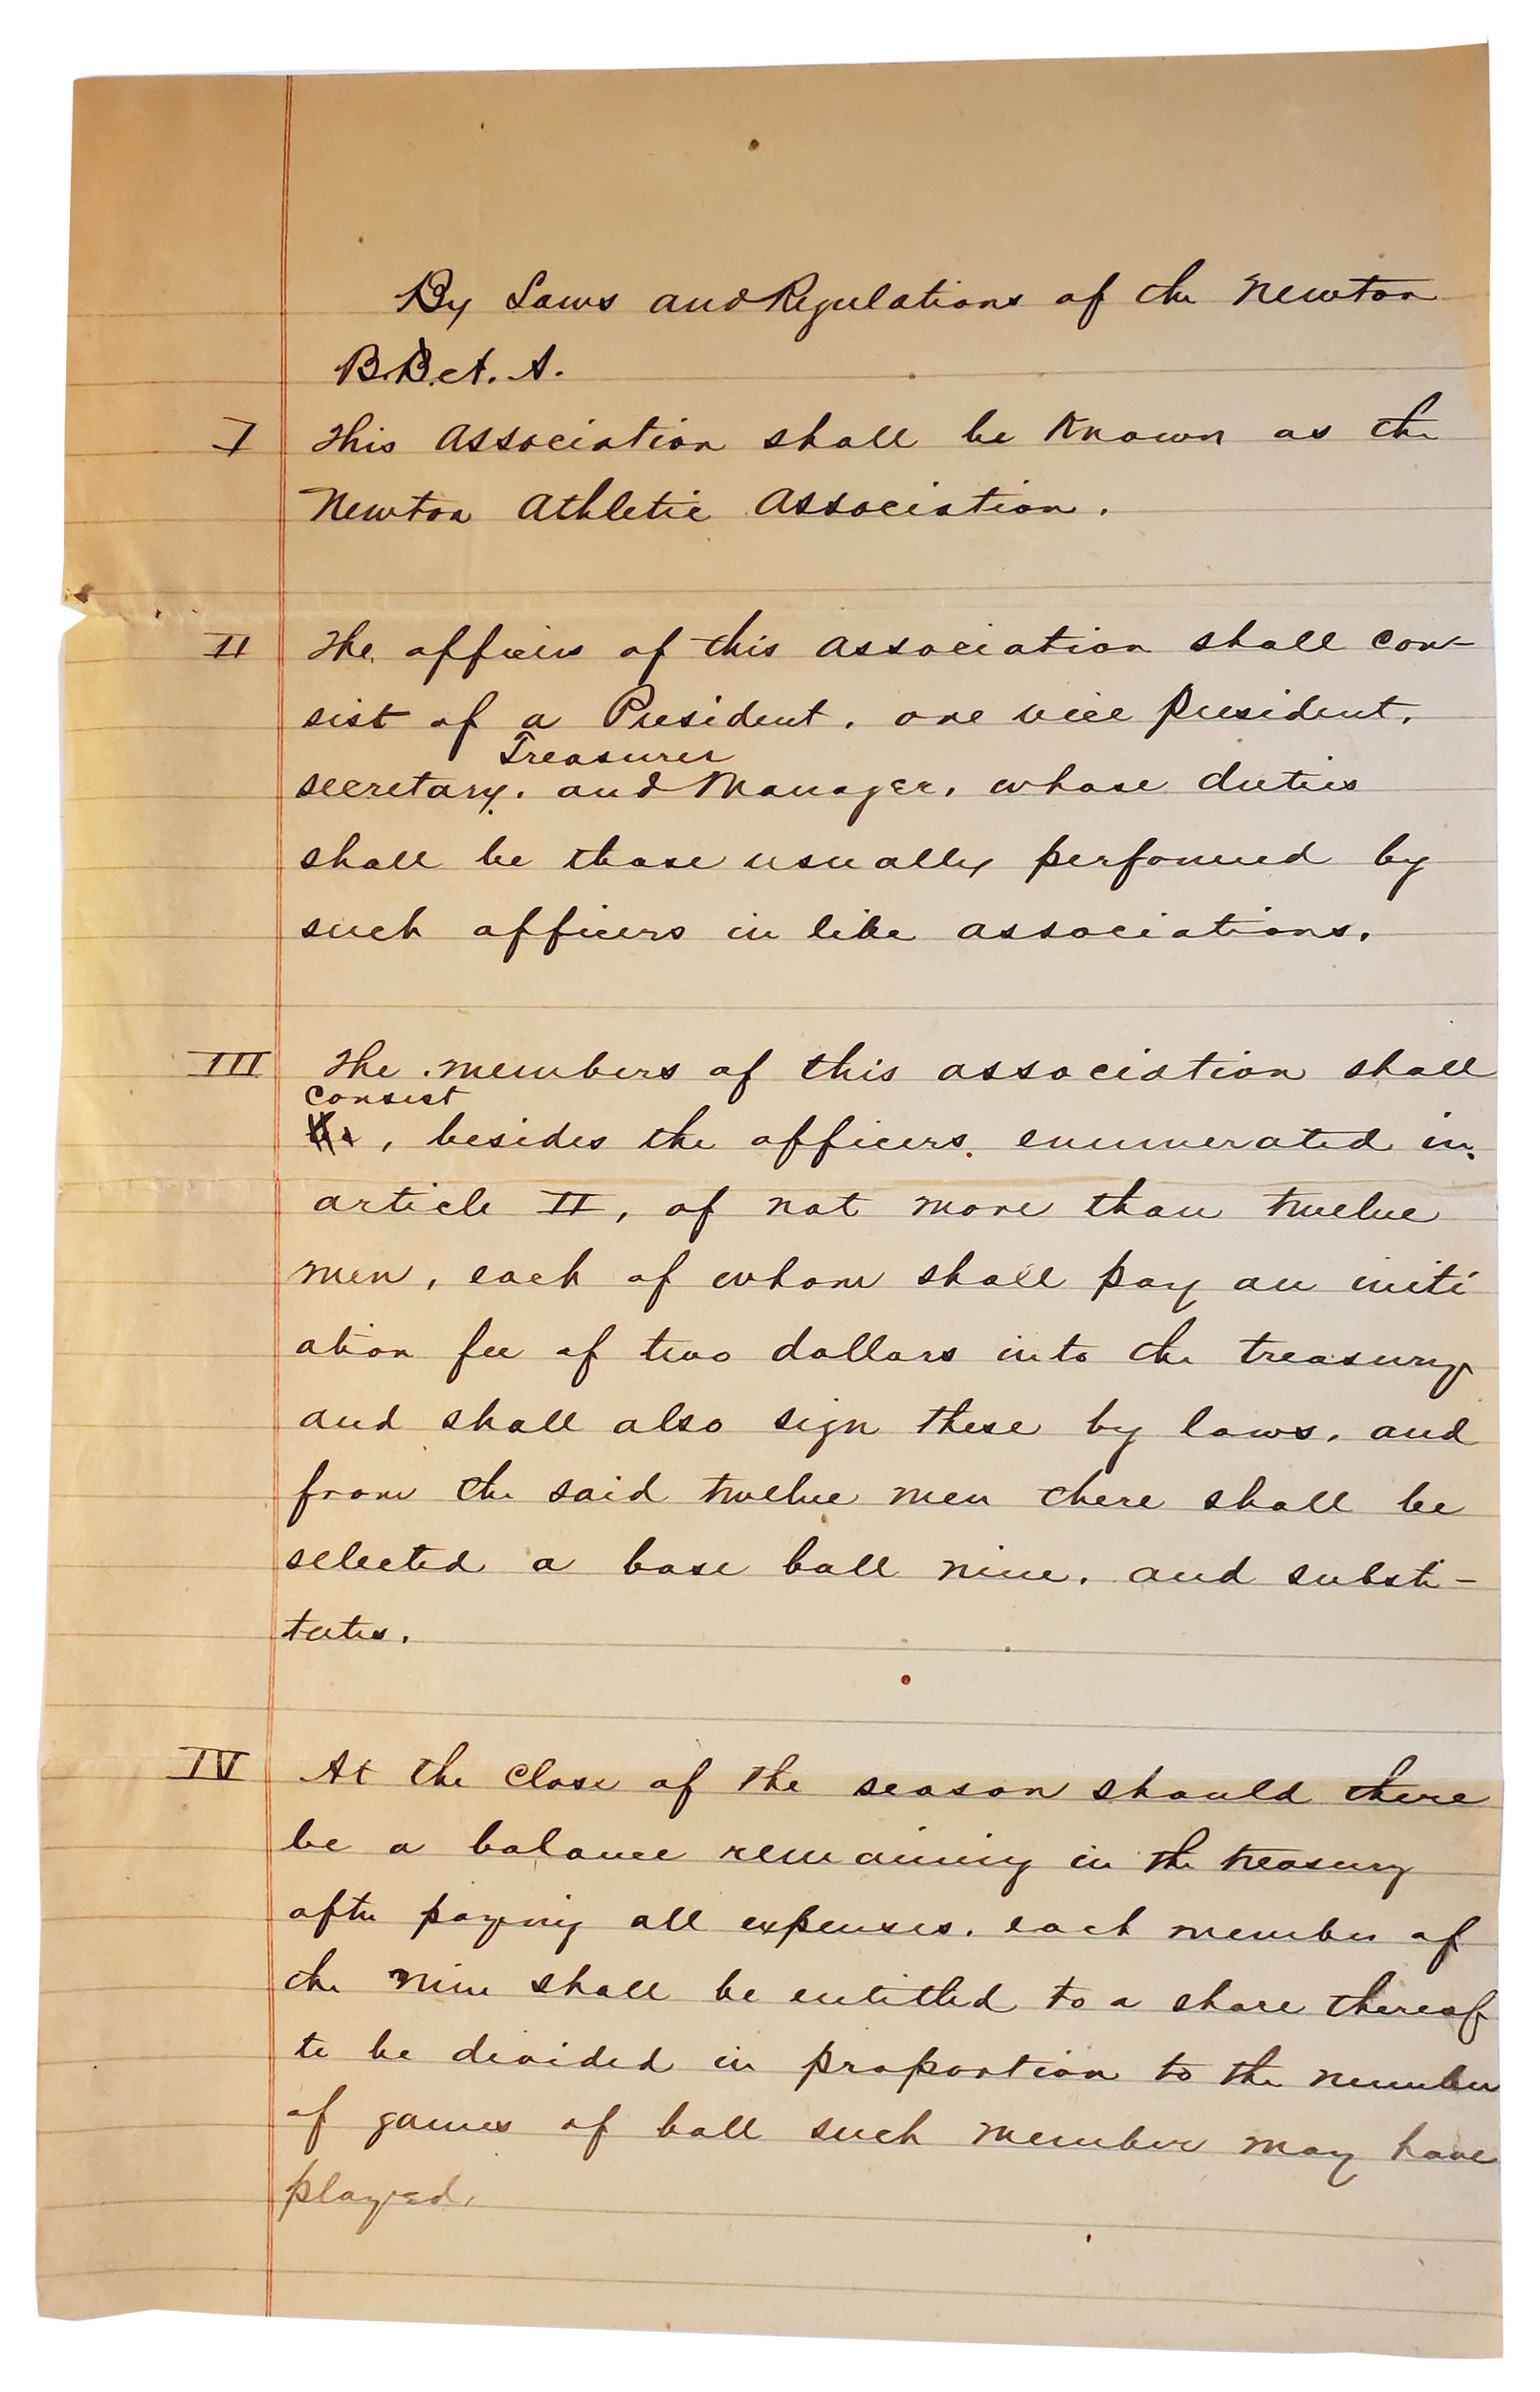 By Laws and Regulations of the Newton
B.B. A. A.
I This Association shall be Known as the
Newton Athletic Association.
II The officers of this Association shall con-
sist of a President, one vice President,
Treasurer
secretary, and Manager, whose duties
shall be those usually performed by
such officers in like associations.
III The members of this association shall
consist
, besides the officers enumerated in
article II, of not more than twelve
men, each of whom shall pay an initi
ation fee of two dollars into the treasury
and shall also sign these by laws, and
from the said twelve men there shall be
selected a base ball nine, and substi-
tutes.
IV At the Close of the season should there
be a balance remaining in the treasury
after paying all expenses, each member of
the nine shall be entitled to a share thereof
to be divided in proportion to the number
of games of ball such member may have
played.